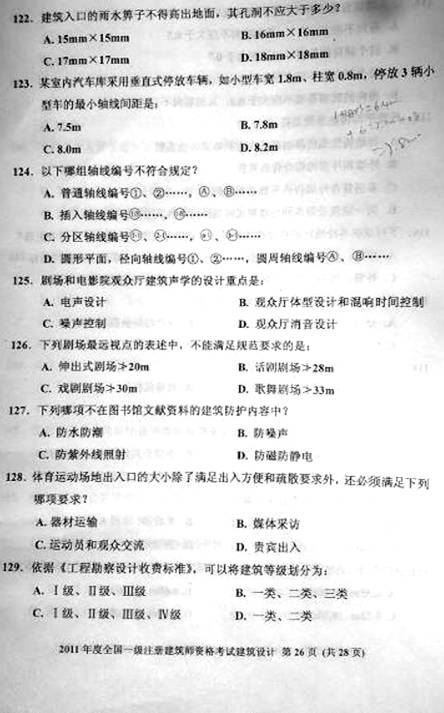 122. 建筑入口的雨水箅子不得高出地面，其孔洞不应大于多少?
A. 15mm×15mm B. 16mm×16mm
C. 17mm×17mm D. 18mm×18mm
123. 某室内汽车库采用垂直式停放车辆，如小型车宽 1.8m、柱宽 0.8m，停放 3 辆小
型车的最小轴线间距是:
A. 7.5m B. 7.8m
C. 8.0m D. 8.2m
124. 以下哪组轴线编号不符合规定?
A. 普通轴线编号①、②……，Ⓐ、Ⓑ……
B. 插入轴线编号……，……
C. 分区轴线编号……，……
D. 圆形平面，径向轴线编号①、②……，圆周轴线编号Ⓐ、Ⓑ……
125. 剧场和电影院观众厅建筑声学的设计重点是:
A. 电声设计 B. 观众厅体型设计和混响时间控制
C. 噪声控制 D. 观众厅消音设计
126. 下列剧场最远视点的表述中，不能满足规范要求的是:
A. 伸出式剧场≯20m B. 话剧剧场≯28m
C. 戏剧剧场≯30m D. 歌舞剧场≯33m
127. 下列哪项不在图书馆文献资料的建筑防护内容中?
A. 防水防潮 B. 防噪声
C. 防紫外线照射 D. 防磁防静电
128. 体育运动场地出入口的大小除了满足出入方便和疏散要求外，还必须满足下列
哪项要求?
A. 器材运输 B. 媒体采访
C. 运动员和观众交流 D. 贵宾出入
129. 依据《工程勘察设计收费标准》，可以将建筑等级划分为:
A. Ⅰ级、Ⅱ级、Ⅲ级 B. 一类、二类、三类
C. Ⅰ级、Ⅱ级、Ⅲ级、Ⅳ级 D. 一类、二类
2011 年度全国一级注册建筑师资格考试建筑设计 第 26 页 (共 28 页)